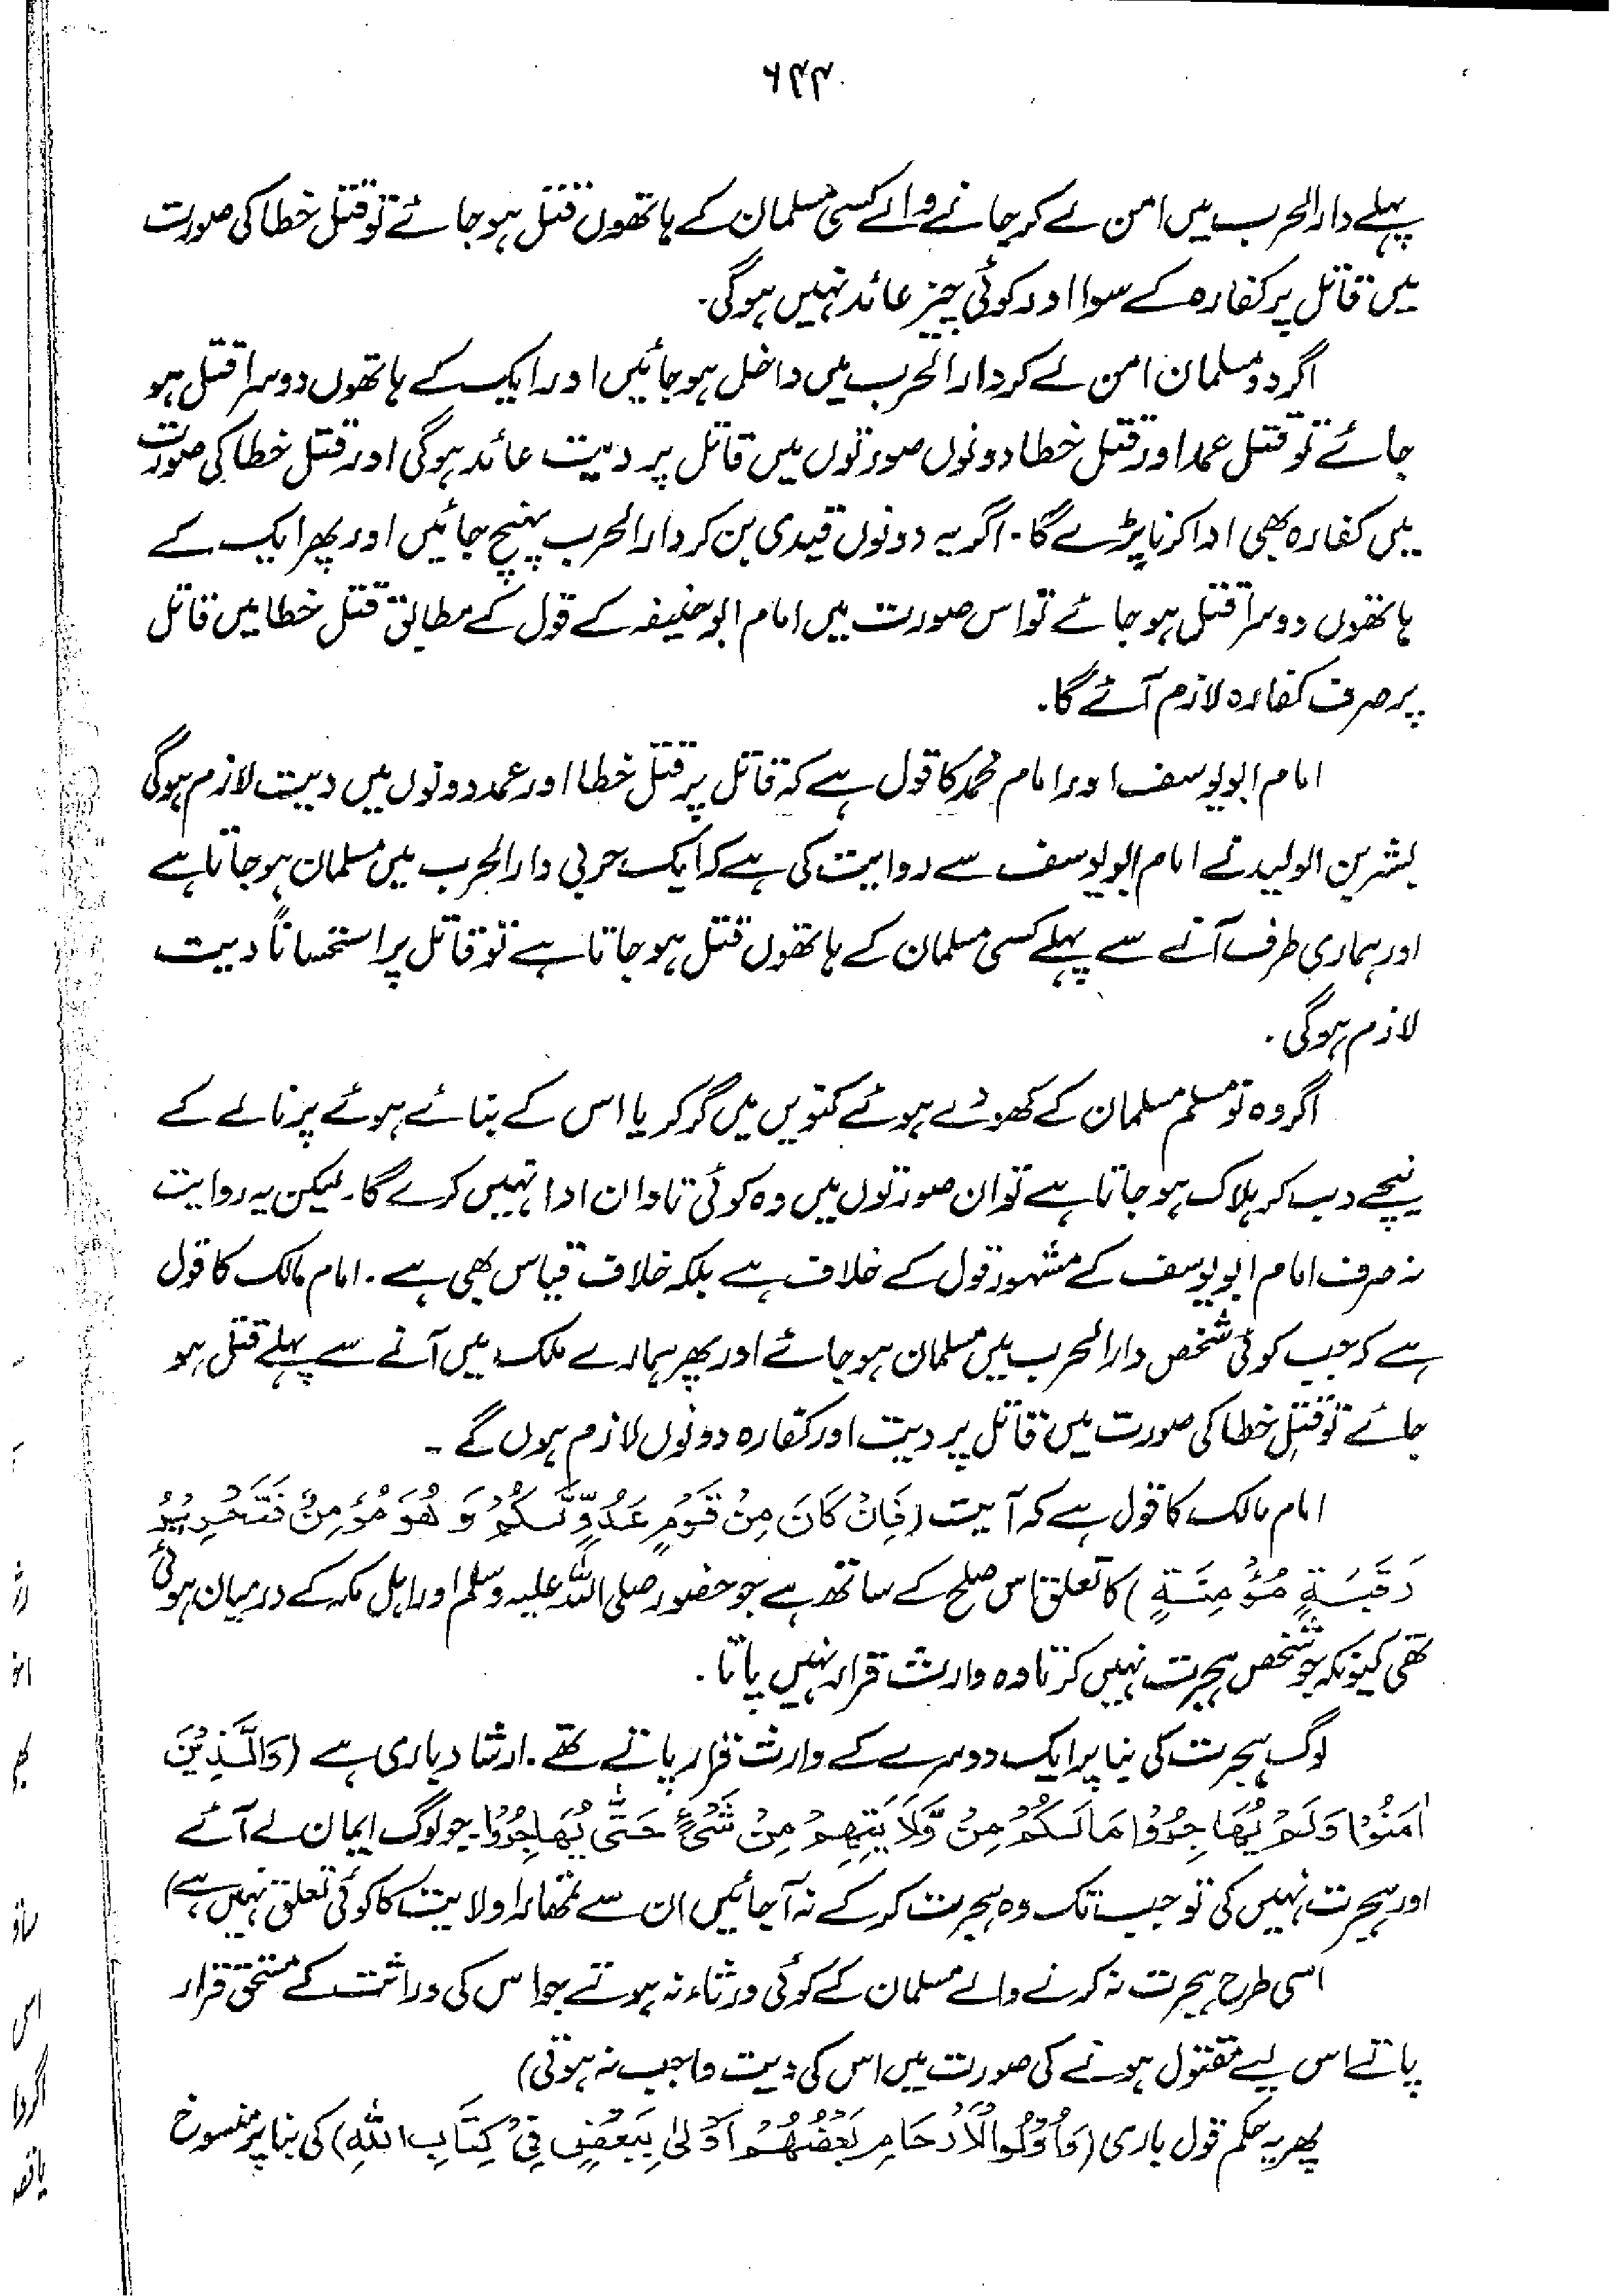 ۶۴۴
پہلے دارالحرب میں امن لے کر جانے والے کسی مسلمان کے ہاتھوں قتل ہو جائے تو قتل خطا کی صورت
میں قاتل پر کفارہ کے سوا اور کوئی چیز عائد نہیں ہوگی۔
اگر دو مسلمان امن لے کر دارالحرب میں داخل ہو جائیں اور ایک کے ہاتھوں دوسرا قتل ہو
جائے تو قتل عمد اور قتل خطا دونوں صورتوں میں قاتل پر دیت عائد ہوگی اور قتل خطا کی صورت
میں کفارہ بھی ادا کرنا پڑے گا۔ اگر یہ دونوں قیدی بن کر دارالحرب پہنچ جائیں اور پھر ایک کے
ہاتھوں دوسرا قتل ہو جائے تو اس صورت میں امام ابوحنیفہ کے قول کے مطابق قتل خطا میں قاتل
پر صرف کفارہ لازم آئے گا۔
امام ابویوسف اور امام محمد کا قول ہے کہ قاتل پر قتل خطا اور عمد دونوں میں دیت لازم ہوگی
بشر بن الولید نے امام ابویوسف سے روایت کی ہے کہ ایک حربی دارالحرب میں مسلمان ہو جاتا ہے
اور ہماری طرف آنے سے پہلے کسی مسلمان کے ہاتھوں قتل ہو جاتا ہے تو قاتل پر استحساناً دیت
لازم ہوگی۔
اگر وہ نو مسلم مسلمان کے کھودے ہوئے کنویں میں گر کر یا اس کے بنائے ہوئے پرنالے کے
نیچے دب کر ہلاک ہو جاتا ہے تو ان صورتوں میں وہ کوئی تاوان ادا نہیں کرے گا۔ لیکن یہ روایت
نہ صرف امام ابویوسف کے مشہور قول کے خلاف ہے بلکہ خلاف قیاس بھی ہے۔ امام مالک کا قول
ہے کہ جب کوئی شخص دارالحرب میں مسلمان ہو جائے اور پھر ہمارے ملک میں آنے سے پہلے قتل ہو
جائے تو قتل خطا کی صورت میں قاتل پر دیت اور کفارہ دونوں لازم ہوں گے۔
امام مالک کا قول ہے کہ آیت (فَاِنْ كَانَ مِنْ قَوْمٍ عَدُوٍّ لَّكُمْ وَهُوَ مُؤْمِنٌ فَتَحْرِيْرُ
رَقَبَةٍ مُّؤْمِنَةٍ) کا تعلق اس صلح کے ساتھ ہے جو حضور صلی اللہ علیہ وسلم اور اہل مکہ کے درمیان ہوئی
تھی کیونکہ جو شخص ہجرت نہیں کرتا وہ وارث قرار نہیں پاتا۔
لوگ ہجرت کی بنا پر ایک دوسرے کے وارث قرار پاتے تھے۔ ارشاد باری ہے (وَالَّذِيْنَ
اٰمَنُوْا وَلَمْ يُهَاجِرُوْا مَا لَكُمْ مِنْ وَّلَايَتِهِمْ مِنْ شَيْءٍ حَتّٰى يُهَاجِرُوْا۔ جو لوگ ایمان لے آئے
اور ہجرت نہیں کی تو جب تک وہ ہجرت کر کے نہ آجائیں ان سے تمھارا ولایت کا کوئی تعلق نہیں ہے)
اسی طرح ہجرت نہ کرنے والے مسلمان کے کوئی ورثاء نہ ہوتے جو اس کی وراثت کے مستحق قرار
پاتے اس لیے مقتول ہونے کی صورت میں اس کی دیت واجب نہ ہوتی)
پھر یہ حکم قول باری (وَاُولُوا الْاَرْحَامِ بَعْضُهُمْ اَوْلٰى بِبَعْضٍ فِيْ كِتَابِ اللّٰهِ) کی بنا پر منسوخ